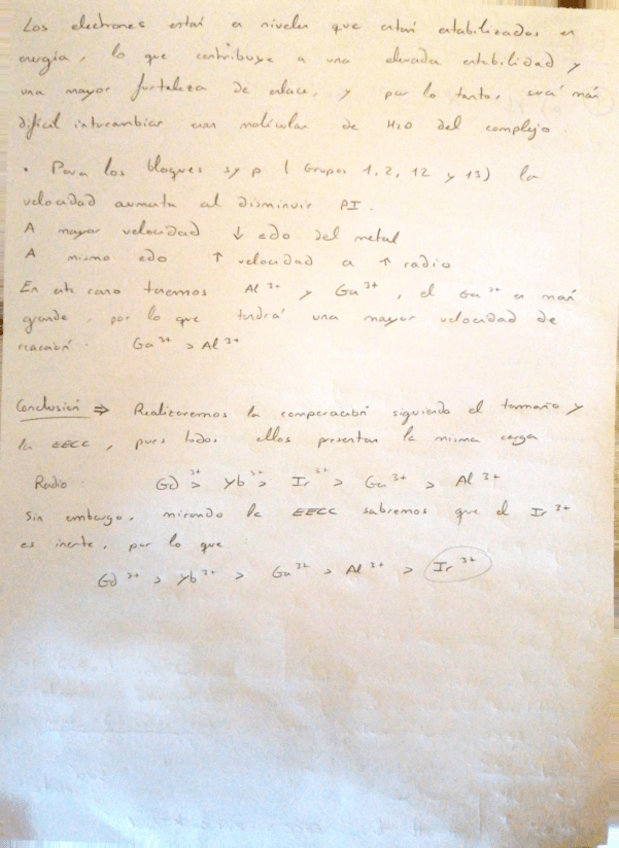 Los electrones están en niveles que están estabilizados en
energía, lo que contribuye a una elevada estabilidad y
una mayor fortaleza de enlace, y por lo tanto, será más
difícil intercambiar una molécula de H2O del complejo.
· Para los bloques s y p (Grupos 1, 2, 12 y 13) la
velocidad aumenta al disminuir PI.
A mayor velocidad ↓ edo del metal
A mismo edo ↑ velocidad a ↑ radio
En este caso tenemos Al 3+ y Ga 3+, el Ga 3+ es más
grande, por lo que tendrá una mayor velocidad de
reacción. Ga 3+ > Al 3+
Conclusión ⇒ Realizaremos la comparación siguiendo el tamaño y
la EECC, pues todos ellos presentan la misma carga
Radio: Gd 3+ > Yb 3+ > Ir 3+ > Ga 3+ > Al 3+
Sin embargo, mirando la EECC sabremos que el Ir 3+
es inerte, por lo que:
Gd 3+ > Yb 3+ > Ga 3+ > Al 3+ > Ir 3+